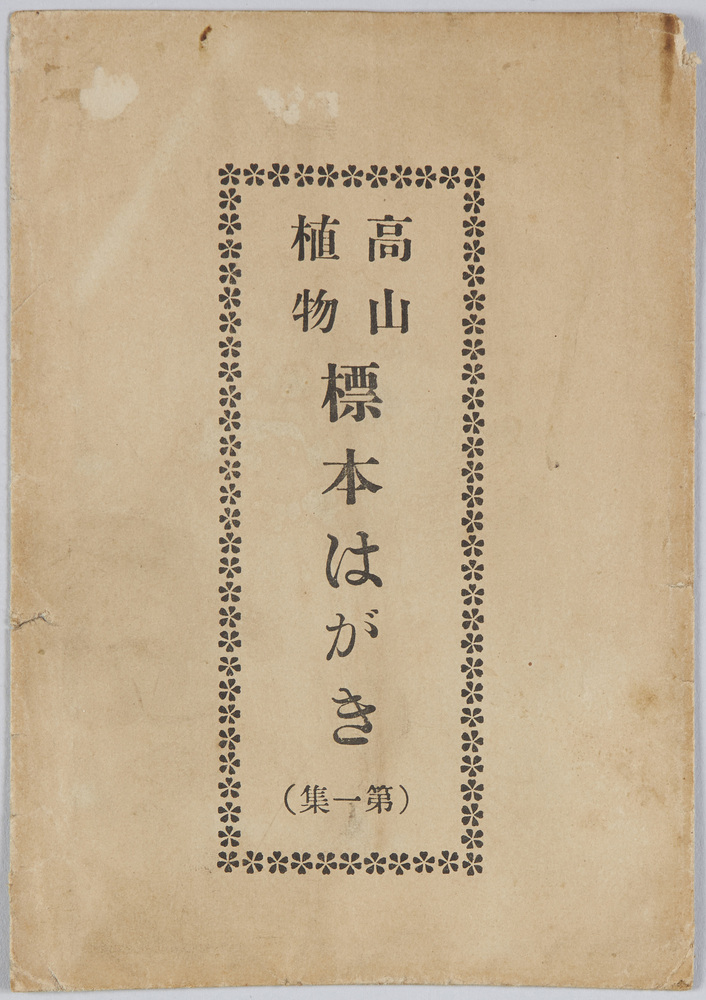 高山
植物
標本はがき
(第一集)